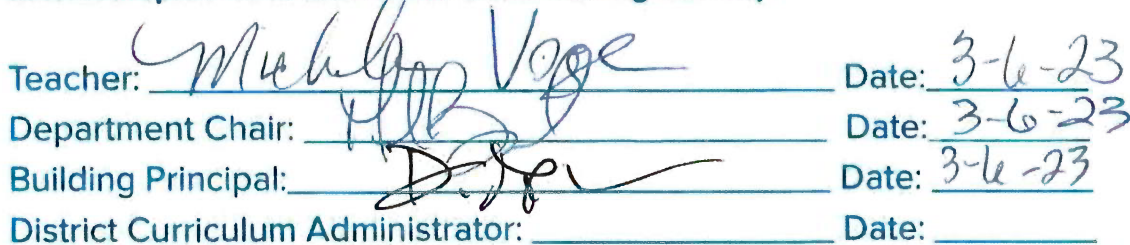 Teacher: Date: 3-6-23
Department Chair: Date: 3-6-23
Building Principal: Date: 3-6-23
District Curriculum Administrator: Date: